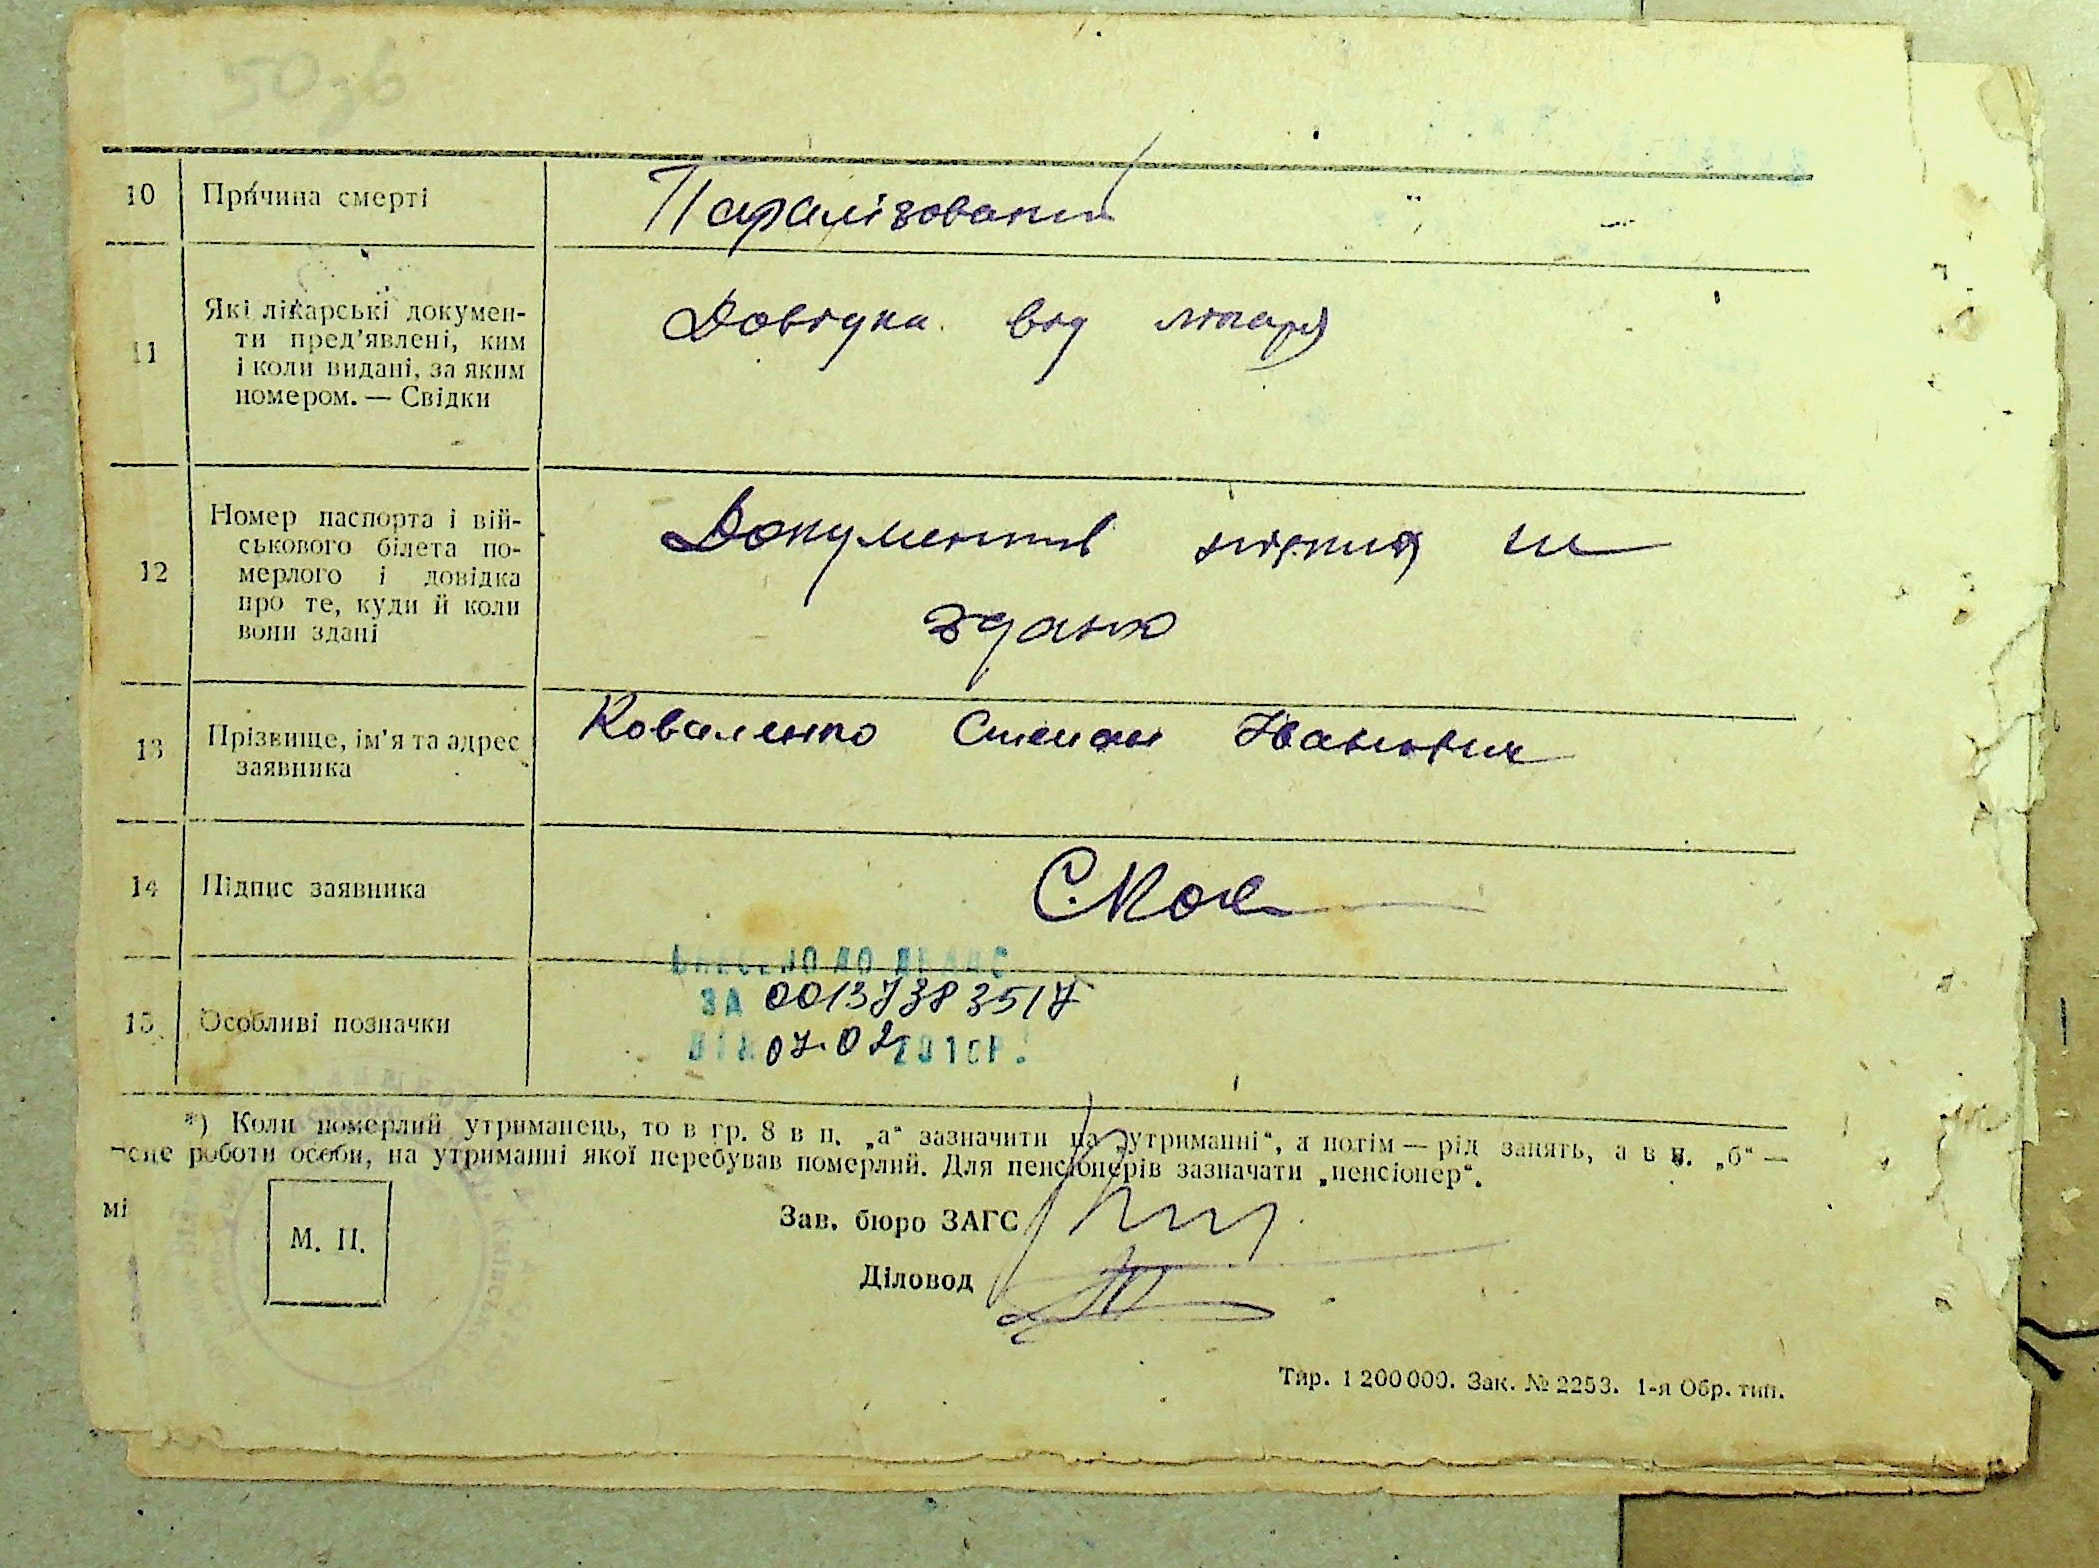 50зв
10 Причина смерті Паралізований
11 Які лікарські докумен-
ти пред'явлені, ким
і коли видані, за яким
номером. — Свідки
Довідка від лікаря
12 Номер паспорта і вій-
ськового білета по-
мерлого і довідка
про те, куди й коли
вони здані
Документів не
здано
13 Прізвище, ім'я та адрес
заявника
Коваленко Степан Іванович
14 Підпис заявника
15 Особливі позначки
ВНЕСЕНО ДО ДРАЦС
ЗА 00137383517
ВІД 07.02 2010Р.
*) Коли померлий утриманець, то в гр. 8 в п. „а“ зазначити на „утриманні“, а потім — рід занять, а в п. „б“ —
сце роботи особи, на утриманні якої перебував померлий. Для пенсіонерів зазначати „пенсіонер“.
мі
М. П.
Зав. бюро ЗАГС
Діловод
Тир. 1 200 000. Зак. № 2253. 1-я Обр. тип.